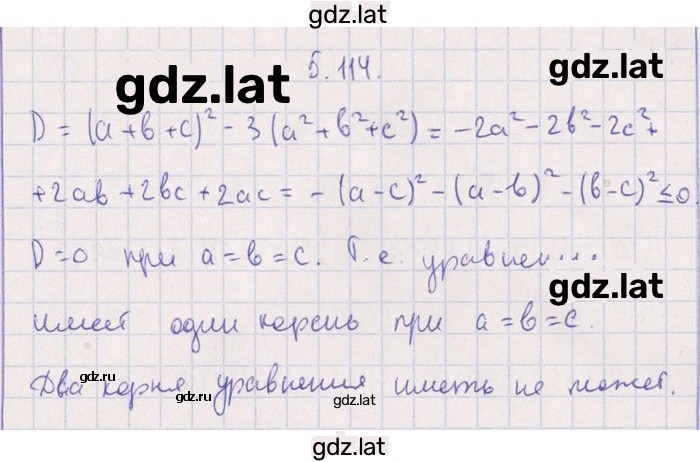 gdz.lat
5.114.
gdz.lat
gdz.lat
D = (a+b+c)² - 3(a²+b²+c²) = -2a² - 2b² - 2c² +
+2ab +2bc +2ac = -(a-c)² - (a-b)² - (b-c)² ≤ 0.
D=0 при a=b=c. Т.е. уравнен...
gdz.lat
имеет один корень при a=b=c.
Два корня уравнения иметь не может.
gdz.ru
gdz.ru
gdz.lat
gdz.lat